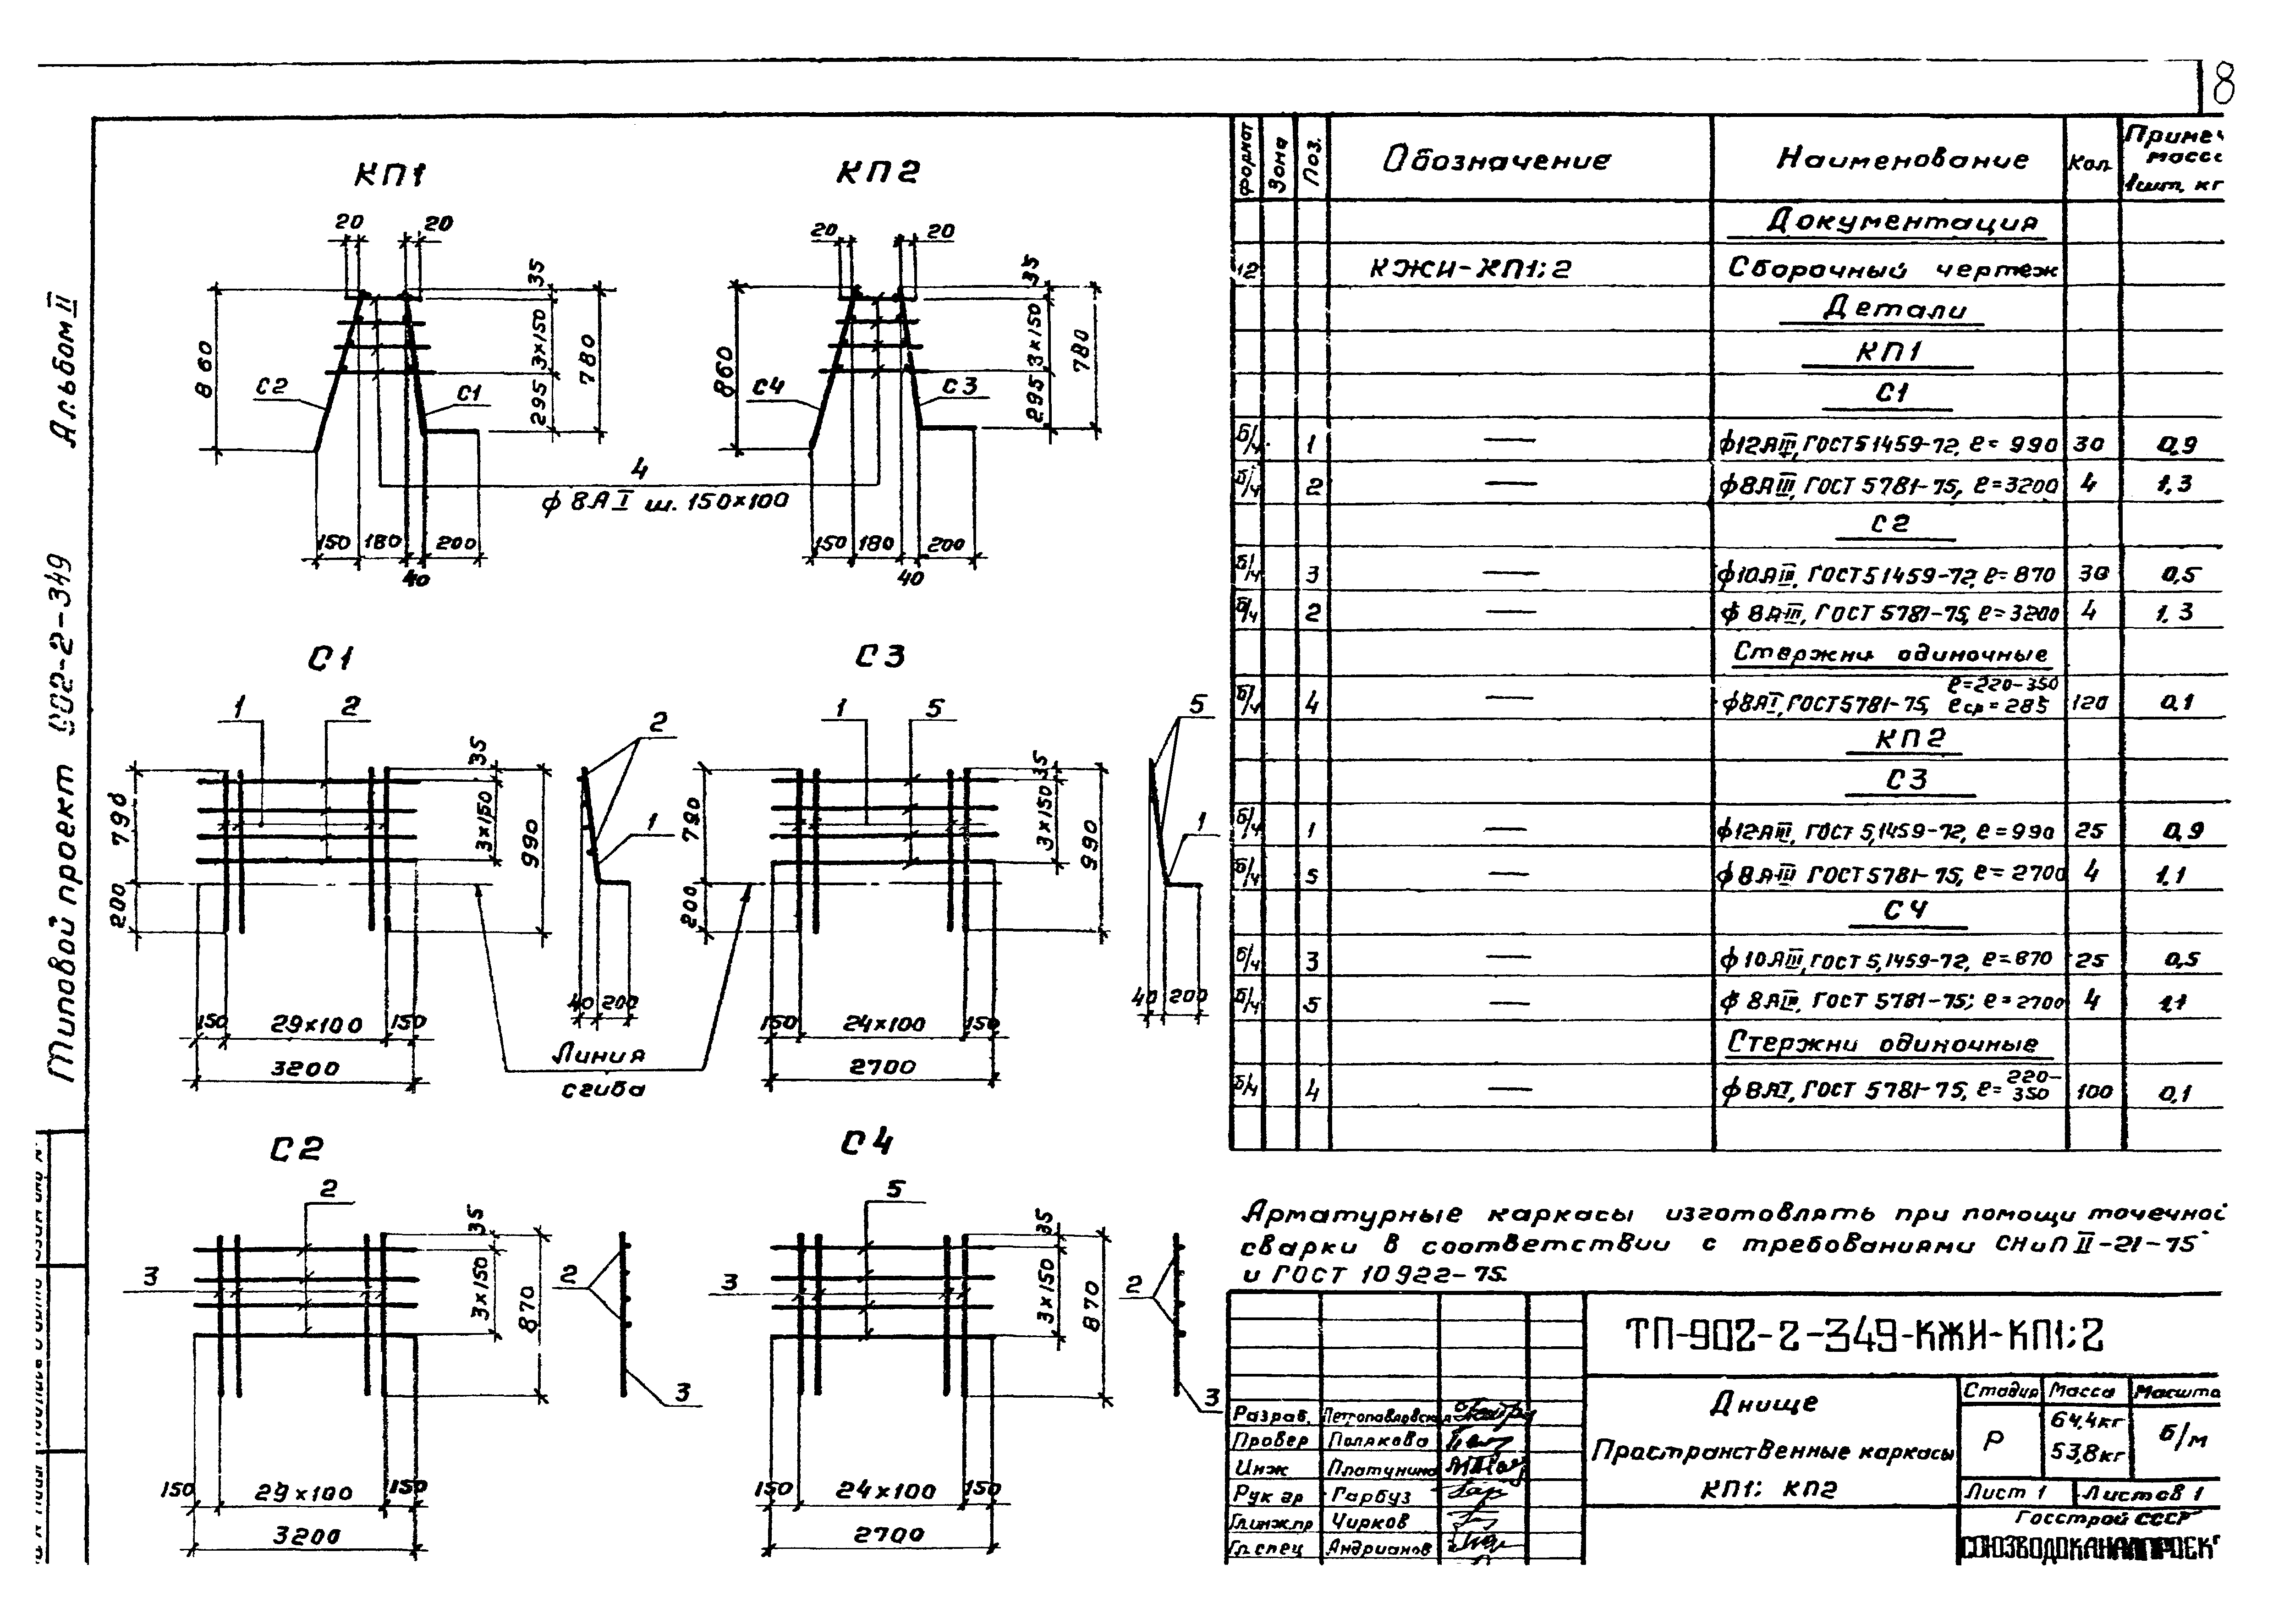 8
Альбом II
Типовой проект 902-2-349
КП1
20 20
35
3×150
295
780
860
С2
С1
150 180 200
40
4
ф 8АI ш. 150×100
КП2
20 20
35
3×150
295
780
860
С4
С3
150 180 200
40
С1
1 2
35
3×150
990
790
200
150 29×100 150
3200
2
1
40 200
Линия
сгиба
С3
1 5
35
3×150
990
790
200
150 24×100 150
2700
5
1
40 200
С2
2
3
35
3×150
870
150 29×100 150
3200
2
3
С4
5
3
35
3×150
870
150 24×100 150
2700
2
3
формат Зона Поз. Обозначение Наименование Кол. Примеч масса 1шт, кг
Документация
12 КЖИ-КП1;2 Сборочный чертеж
Детали
КП1
С1
б/ч 1 — ф12АIII, ГОСТ51459-72, ℓ= 990 30 0,9
б/ч 2 — ф8АIII, ГОСТ 5781-75, ℓ=3200 4 1,3
С2
б/ч 3 — ф10АIII, ГОСТ51459-72, ℓ=870 30 0,5
б/ч 2 — ф 8АIII, ГОСТ 5781-75, ℓ=3200 4 1,3
Стержни одиночные
б/ч 4 — ф8АI, ГОСТ5781-75, ℓ=220-350 ℓср=285 120 0,1
КП2
С3
б/ч 1 — ф12АIII, ГОСТ 5,1459-72, ℓ=990 25 0,9
б/ч 5 — ф8АIII ГОСТ5781-75, ℓ=2700 4 1,1
С4
б/ч 3 — ф10АIII, ГОСТ 5,1459-72, ℓ=870 25 0,5
б/ч 5 — ф 8АIII, ГОСТ 5781-75; ℓ=2700 4 1,1
Стержни одиночные
б/ч 4 — ф8АI, ГОСТ 5781-75, ℓ= 220-350 100 0,1
Арматурные каркасы изготовлять при помощи точечной
сварки в соответствии с требованиями СНиП II-21-75
и ГОСТ 10922-75.
ТП-902-2-349-КЖИ-КП1;2
Днище
Пространственные каркасы
КП1; КП2
Стадия Масса Масшта
Р 64,4кг 53,8кг б/м
Лист 1 Листов 1
Госстрой СССР
СОЮЗВОДОКАНАЛПРОЕКТ
Разраб. Петропавловская
Провер Полякова
Инж Платунина
Рук гр Гарбуз
Гл.инж.пр Чирков
Гл.спец Андрианов